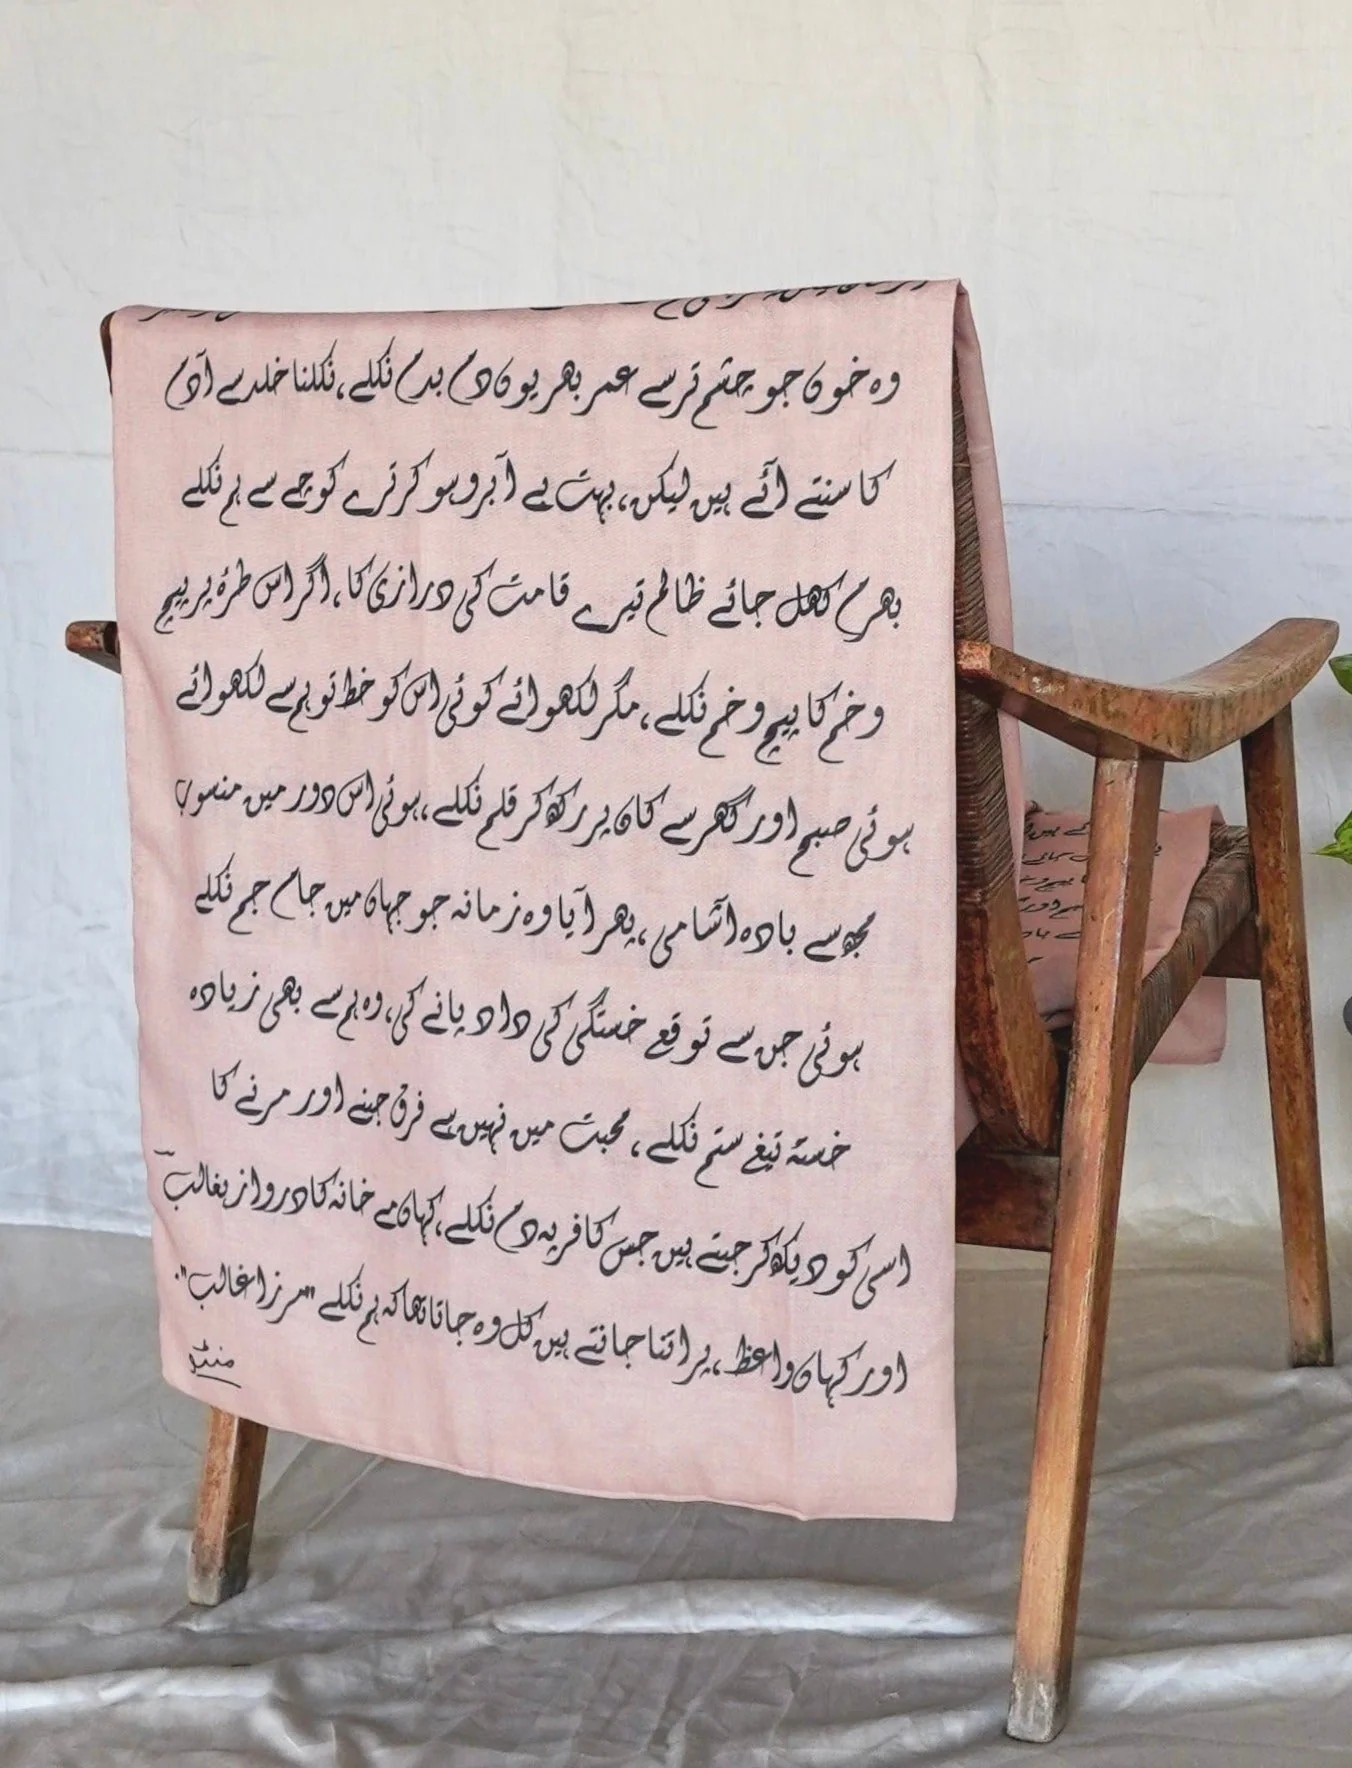 وہ خون جو چشم تر سے عمر بھر یوں دم بدم نکلے، نکلنا خلد سے آدم
کا سنتے آئے ہیں لیکن، بہت بے آبرو ہو کر ترے کوچے سے ہم نکلے
بھرم کھل جائے ظالم تیرے قامت کی درازی کا، اگر اس طرۂ پر پیچ
و خم کا پیچ و خم نکلے، مگر لکھوائے کوئی اس کو خط تو ہم سے لکھوائے
ہوئی صبح اور گھر سے کان پر رکھ کر قلم نکلے، ہوئی اس دور میں منسوب
مجھ سے بادہ آشامی، پھر آیا وہ زمانہ جو جہاں میں جام جم نکلے
ہوئی جن سے توقع خستگی کی داد پانے کی، وہ ہم سے بھی زیادہ
خستۂ تیغ ستم نکلے، محبت میں نہیں ہے فرق جینے اور مرنے کا
اسی کو دیکھ کر جیتے ہیں جس کافر پہ دم نکلے، کہاں مے خانہ کا دروازہ غالبؔ
اور کہاں واعظ، پر اتنا جانتے ہیں کل وہ جاتا تھا کہ ہم نکلے "مرزا غالب".
منٹو